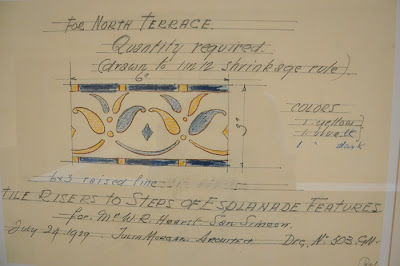 FOR NORTH TERRACE.
Quantity required
(drawn to 1 in 12 shrinkage rule).
6"
3"
COLORS
1 yellow
1 blue
1 " dark
6x3 raised line
TILE RISERS TO STEPS OF ESPLANADE FEATURES
for Mr W.R. Hearst San Simeon.
July 24 1929 JULIA MORGAN ARCHITECT Drg. No. 503.